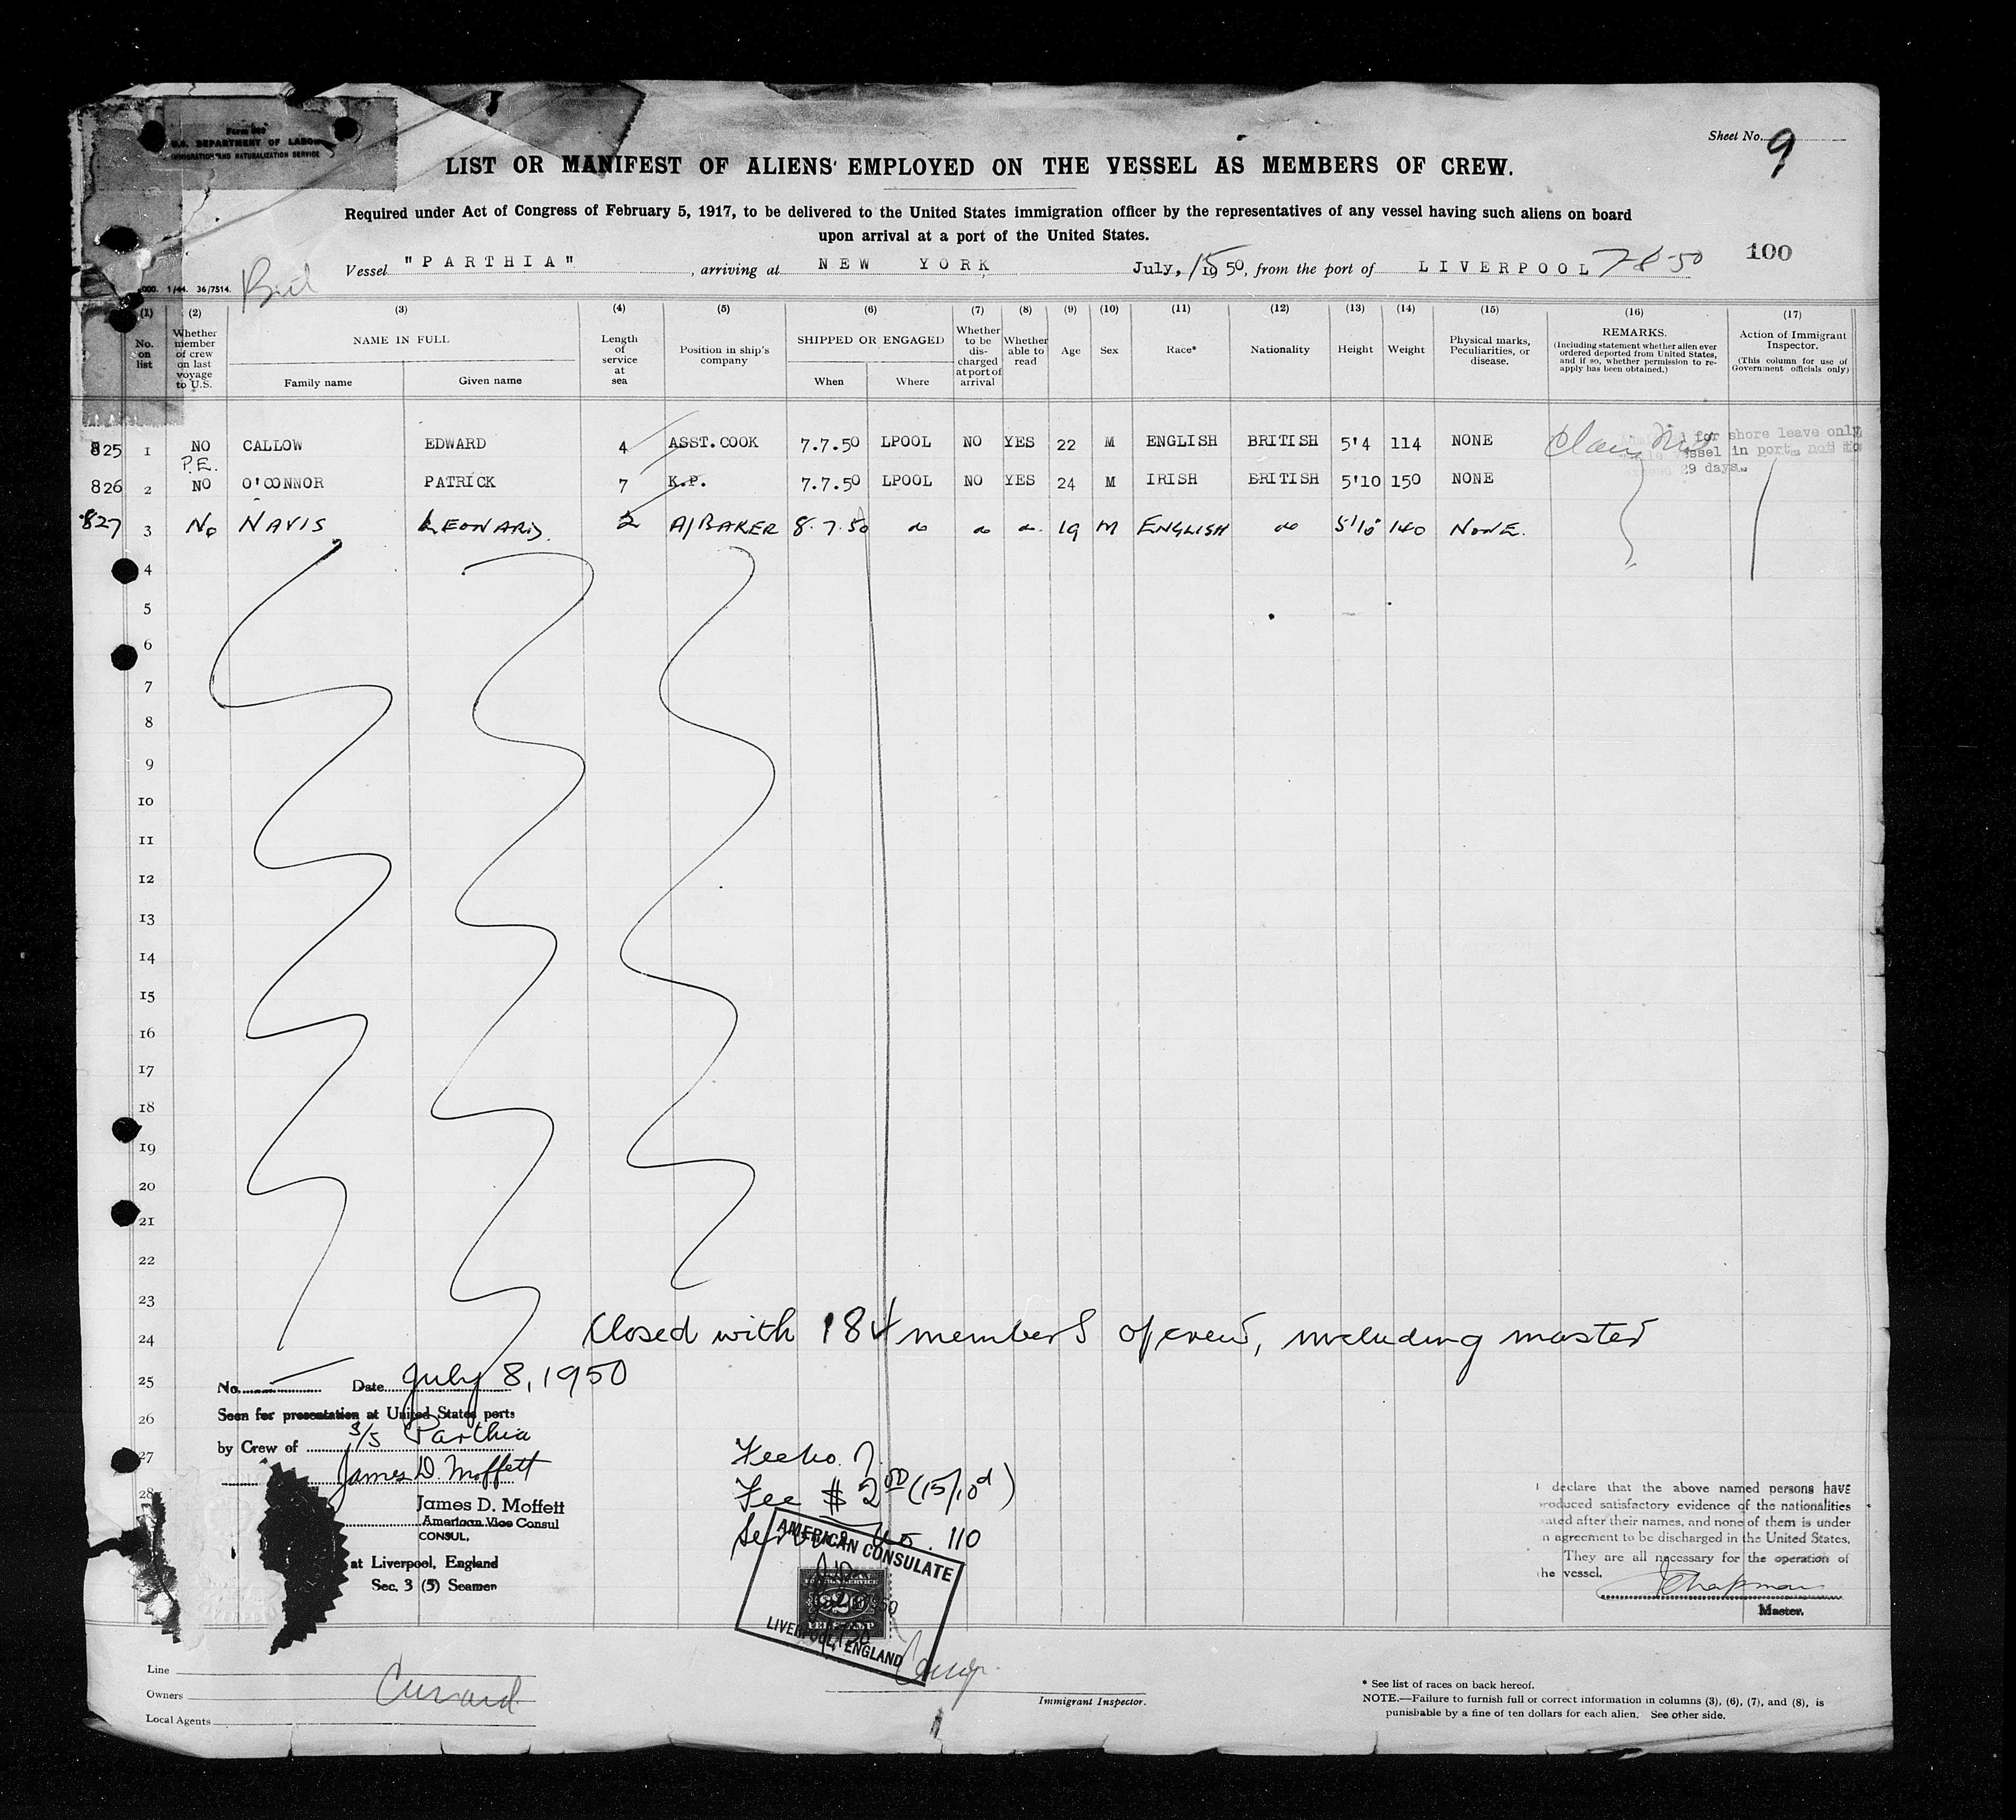 Form 689
U.S. DEPARTMENT OF LABOR
IMMIGRATION AND NATURALIZATION SERVICE
Sheet No. 9
LIST OR MANIFEST OF ALIENS EMPLOYED ON THE VESSEL AS MEMBERS OF CREW.
Required under Act of Congress of February 5, 1917, to be delivered to the United States immigration officer by the representatives of any vessel having such aliens on board
upon arrival at a port of the United States.
100
Vessel "PARTHIA", arriving at NEW YORK July, 15 1950, from the port of LIVERPOOL 7-8-50
000. 1/44. 36/7514.
(1) (2) (3) (4) (5) (6) (7) (8) (9) (10) (11) (12) (13) (14) (15) (16) (17)
No. on list
Whether member of crew on last voyage to U.S.
NAME IN FULL
Family name Given name
Length of service at sea
Position in ship's company
SHIPPED OR ENGAGED
When Where
Whether to be discharged at port of arrival
Whether able to read
Age
Sex
Race*
Nationality
Height
Weight
Physical marks, Peculiarities, or disease.
REMARKS.
(Including statement whether alien ever ordered deported from United States, and if so, whether permission to re-apply has been obtained.)
Action of Immigrant Inspector.
(This column for use of Government officials only)
825 1 NO CALLOW EDWARD 4 ASST.COOK 7.7.50 LPOOL NO YES 22 M ENGLISH BRITISH 5'4 114 NONE
for shore leave only
P.E.
vessel in port, not to
29 days.
826 2 NO O'CONNOR PATRICK 7 K.P. 7.7.50 LPOOL NO YES 24 M IRISH BRITISH 5'10 150 NONE
827 3 No NAVIS LEONARD. 2 A/BAKER 8.7.50 do do do 19 M ENGLISH do 5'10 140 NONE.
4
5
6
7
8
9
10
11
12
13
14
15
16
17
18
19
20
21
22
23
24 Closed with 184 members of crew, including master
25 No. Date July 8, 1950
Seen for presentation at United States ports
26
by Crew of S/S Parthia
27
James D. Moffett
28
James D. Moffett
American Vice Consul
CONSUL,
at Liverpool, England
Sec. 3 (5) Seamen
Fee $2.00 (15/10d)
110
AMERICAN CONSULATE
FOREIGN SERVICE
LIVERPOOL, ENGLAND
I declare that the above named persons have
produced satisfactory evidence of the nationalities
stated after their names, and none of them is under
an agreement to be discharged in the United States.
They are all necessary for the operation of
the vessel.
Chapman
Master.
Line
Owners Cunard
Local Agents
Immigrant Inspector.
* See list of races on back hereof.
NOTE.—Failure to furnish full or correct information in columns (3), (6), (7), and (8), is
punishable by a fine of ten dollars for each alien. See other side.